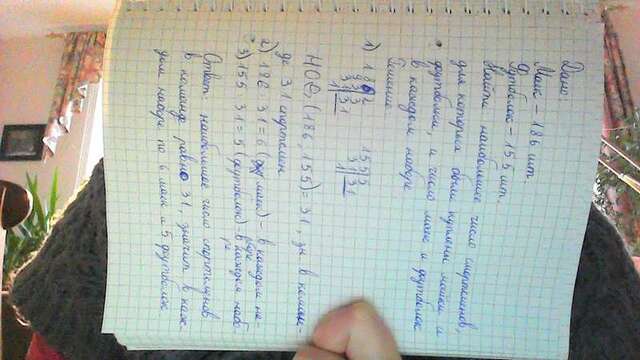 Дано:
Маек - 186 шт
Футболок - 155 шт
Найти наибольшее число спортсменов,
для которых были куплены майки и
футболки, и число маек и футболок
в каждом наборе
Решение
1) 186 2 155 5
93 3 31 31
31 31 1
1
НОД (186, 155) = 31, зн. в коман-
де 31 спортсмен
2) 186 : 31 = 6 (маек) - в каждом на-
боре
3) 155 : 31 = 5 (футболок) - в каждом набо-
ре
Ответ: наибольшее число спортсменов
в команде равно 31, значит в каж-
дом наборе по 6 маек и 5 футболок